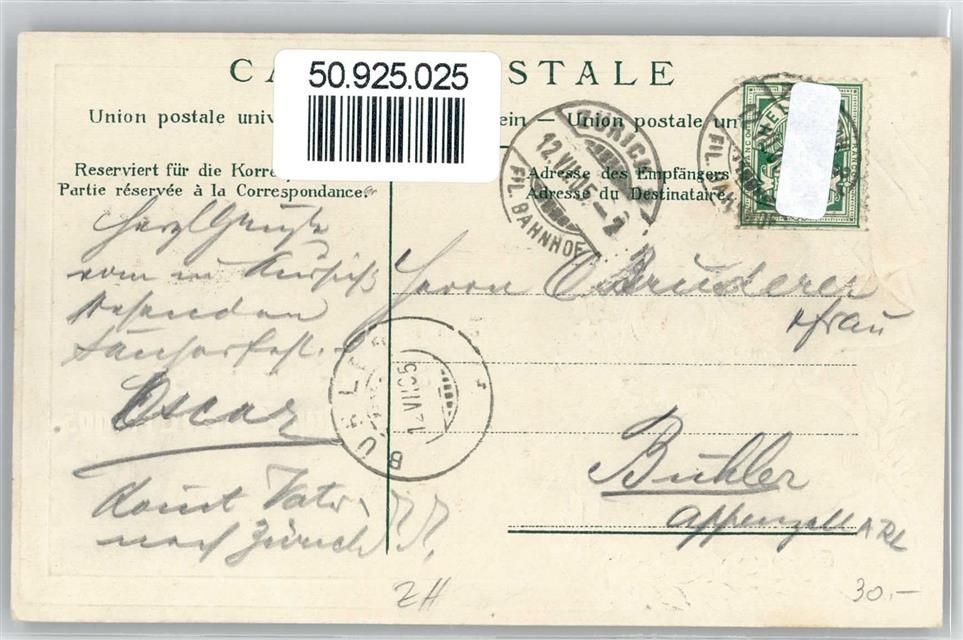 50.925.025
CA STALE
Union postale univ ein — Union postale un
Reserviert für die Korre
Partie réservée à la Correspondance.
Adresse des Empfängers
Adresse du Destinataire
ZÜRICH
12.VII.05.–2
FIL. BAHNHOF
FIL. BAHNHOF
HELV
FRANCO
Herzl Grüsse
vom in
Oscar
Komt Vater
nach Zürich ??
Herrn O. Bruderer
& Frau
BÜHLER
12 VII 05
Bühler
Appenzell A RL
ZH
30.–